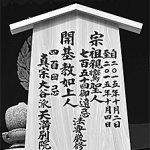 自二〇一五年十月二日
至二〇一五年十月四日
宗祖親鸞聖人
七百五十回御遠忌法要厳修
開基教如上人
四百回忌
真宗大谷派天満別院